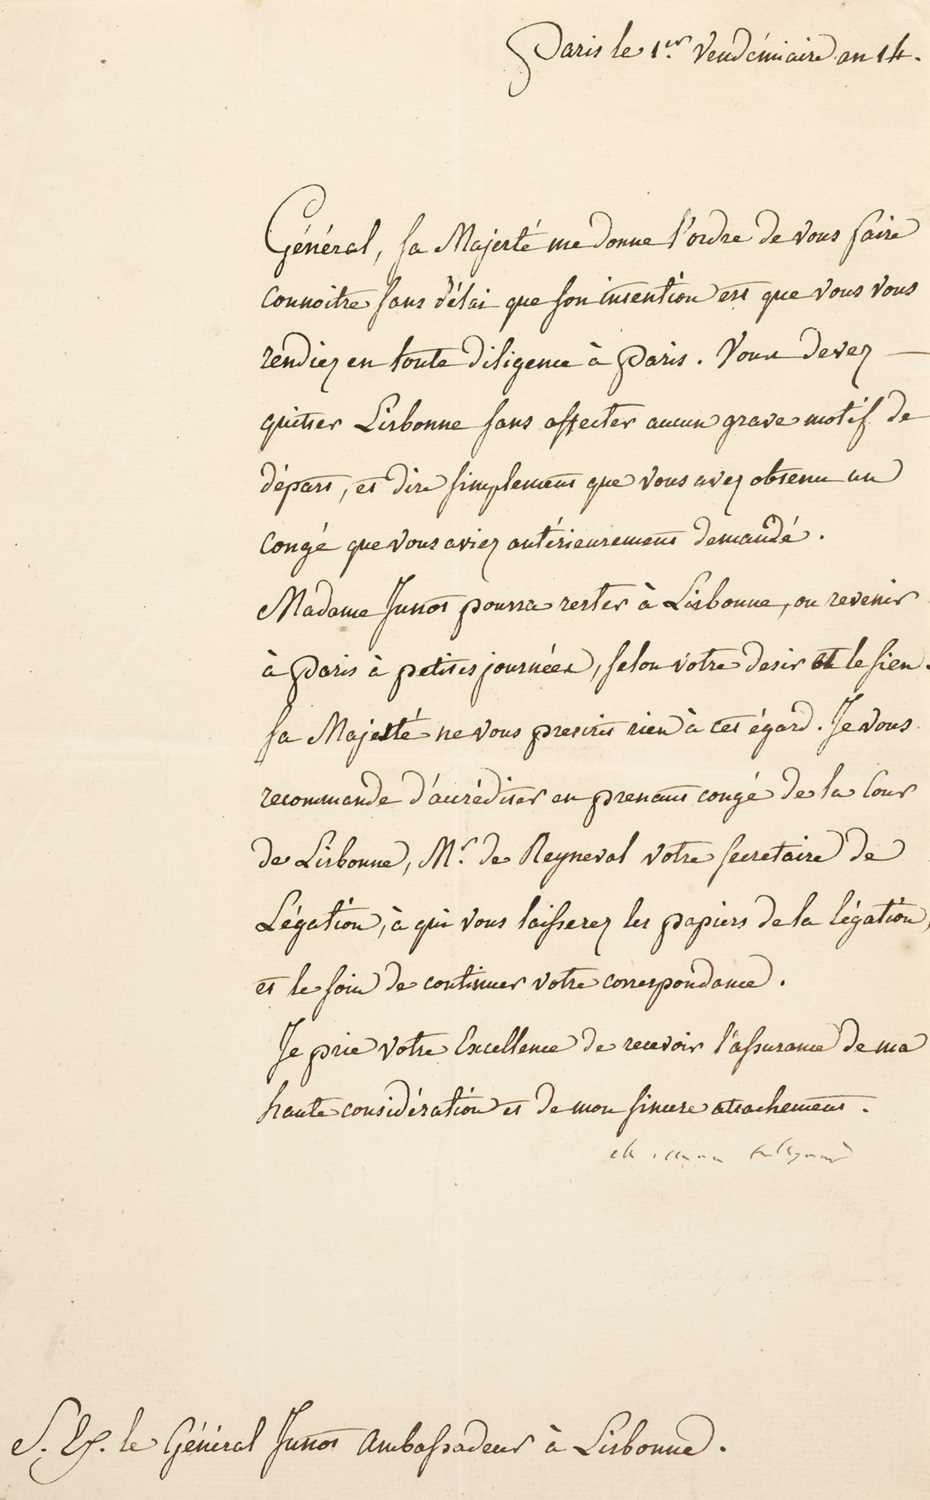 Paris le 1.er Vendémiaire an 14.
Général, Sa Majesté me donne l'ordre de vous faire
connoitre sans délai que son intention est que vous vous
rendiez en toute diligence à Paris. Vous devez —
quitter Lisbonne sans affecter aucun grave motif de
départ, et dire simplement que vous avez obtenu un
congé que vous aviez antérieurement demandé.
Madame Junot pourra rester à Lisbonne, ou revenir
à Paris à petites journées, selon votre desir et le sien.
Sa Majesté ne vous prescrit rien à cet égard. Je vous
recommande d'accréditer en prenant congé de la Cour
de Lisbonne, M.r de Reyneval votre secretaire de
Légation, à qui vous laisserez les papiers de la légation,
et le soin de continuer votre correspondance.
Je prie votre Excellence de recevoir l'assurance de ma
haute considération et de mon sincere attachement.
S. Ex. le Général Junot Ambassadeur à Lisbonne.